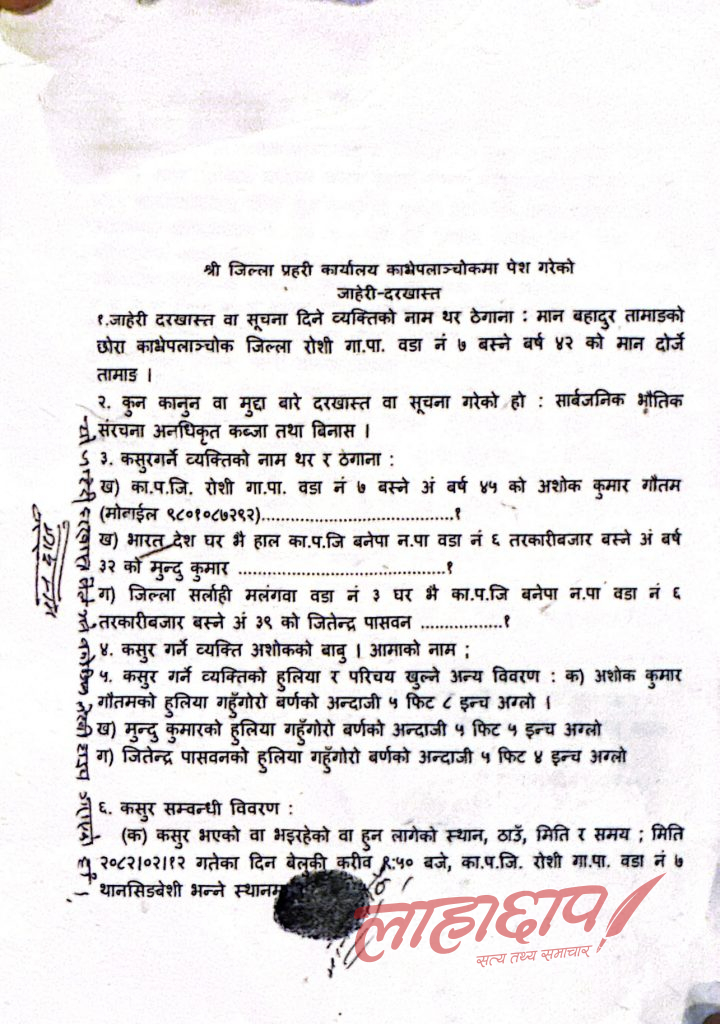 श्री जिल्ला प्रहरी कार्यालय काभ्रेपलाञ्चोकमा पेश गरेको
जाहेरी-दरखास्त
१.जाहेरी दरखास्त वा सूचना दिने व्यक्तिको नाम थर ठेगाना : मान बहादुर तामाङको
छोरा काभ्रेपलाञ्चोक जिल्ला रोशी गा.पा. वडा नं ७ बस्ने बर्ष ४२ को मान दोर्जे
तामाङ ।
२. कुन कानुन वा मुद्दा बारे दरखास्त वा सूचना गरेको हो : सार्बजनिक भौतिक
संरचना अनधिकृत कब्जा तथा बिनास ।
३. कसुरगर्ने व्यक्तिको नाम थर र ठेगाना :
ख) का.प.जि. रोशी गा.पा. वडा नं ७ बस्ने अं बर्ष ४५ को अशोक कुमार गौतम
(मोवाईल ९८०१०८७२९२).....................................१
ख) भारत देश घर भै हाल का.प.जि बनेपा न.पा वडा नं ६ तरकारीबजार बस्ने अं बर्ष
३२ को मुन्दु कुमार ........................................१
ग) जिल्ला सर्लाही मलंगवा वडा नं ३ घर भै का.प.जि बनेपा न.पा वडा नं ६
तरकारीबजार बस्ने अं ३९ को जितेन्द्र पासवन ................१
४. कसुर गर्ने व्यक्ति अशोकको बाबु । आमाको नाम ;
५. कसुर गर्ने व्यक्तिको हुलिया र परिचय खुल्ने अन्य विवरण : क) अशोक कुमार
गौतमको हुलिया गहुँगोरो बर्णको अन्दाजी ५ फिट ८ इन्च अग्लो ।
ख) मुन्दु कुमारको हुलिया गहुँगोरो बर्णको अन्दाजी ५ फिट ५ इन्च अग्लो
ग) जितेन्द्र पासवनको हुलिया गहुँगोरो बर्णको अन्दाजी ५ फिट ४ इन्च अग्लो
६. कसुर सम्वन्धी विवरण :
(क) कसुर भएको वा भइरहेको वा हुन लागेको स्थान, ठाउँ, मिति र समय ; मिति
२०८२।०२।१२ गतेका दिन बेलुकी करीव ९:५० बजे, का.प.जि. रोशी गा.पा. वडा नं ७
थानसिङबेशी भन्ने
लाहाछाप
सत्य तथ्य समाचार